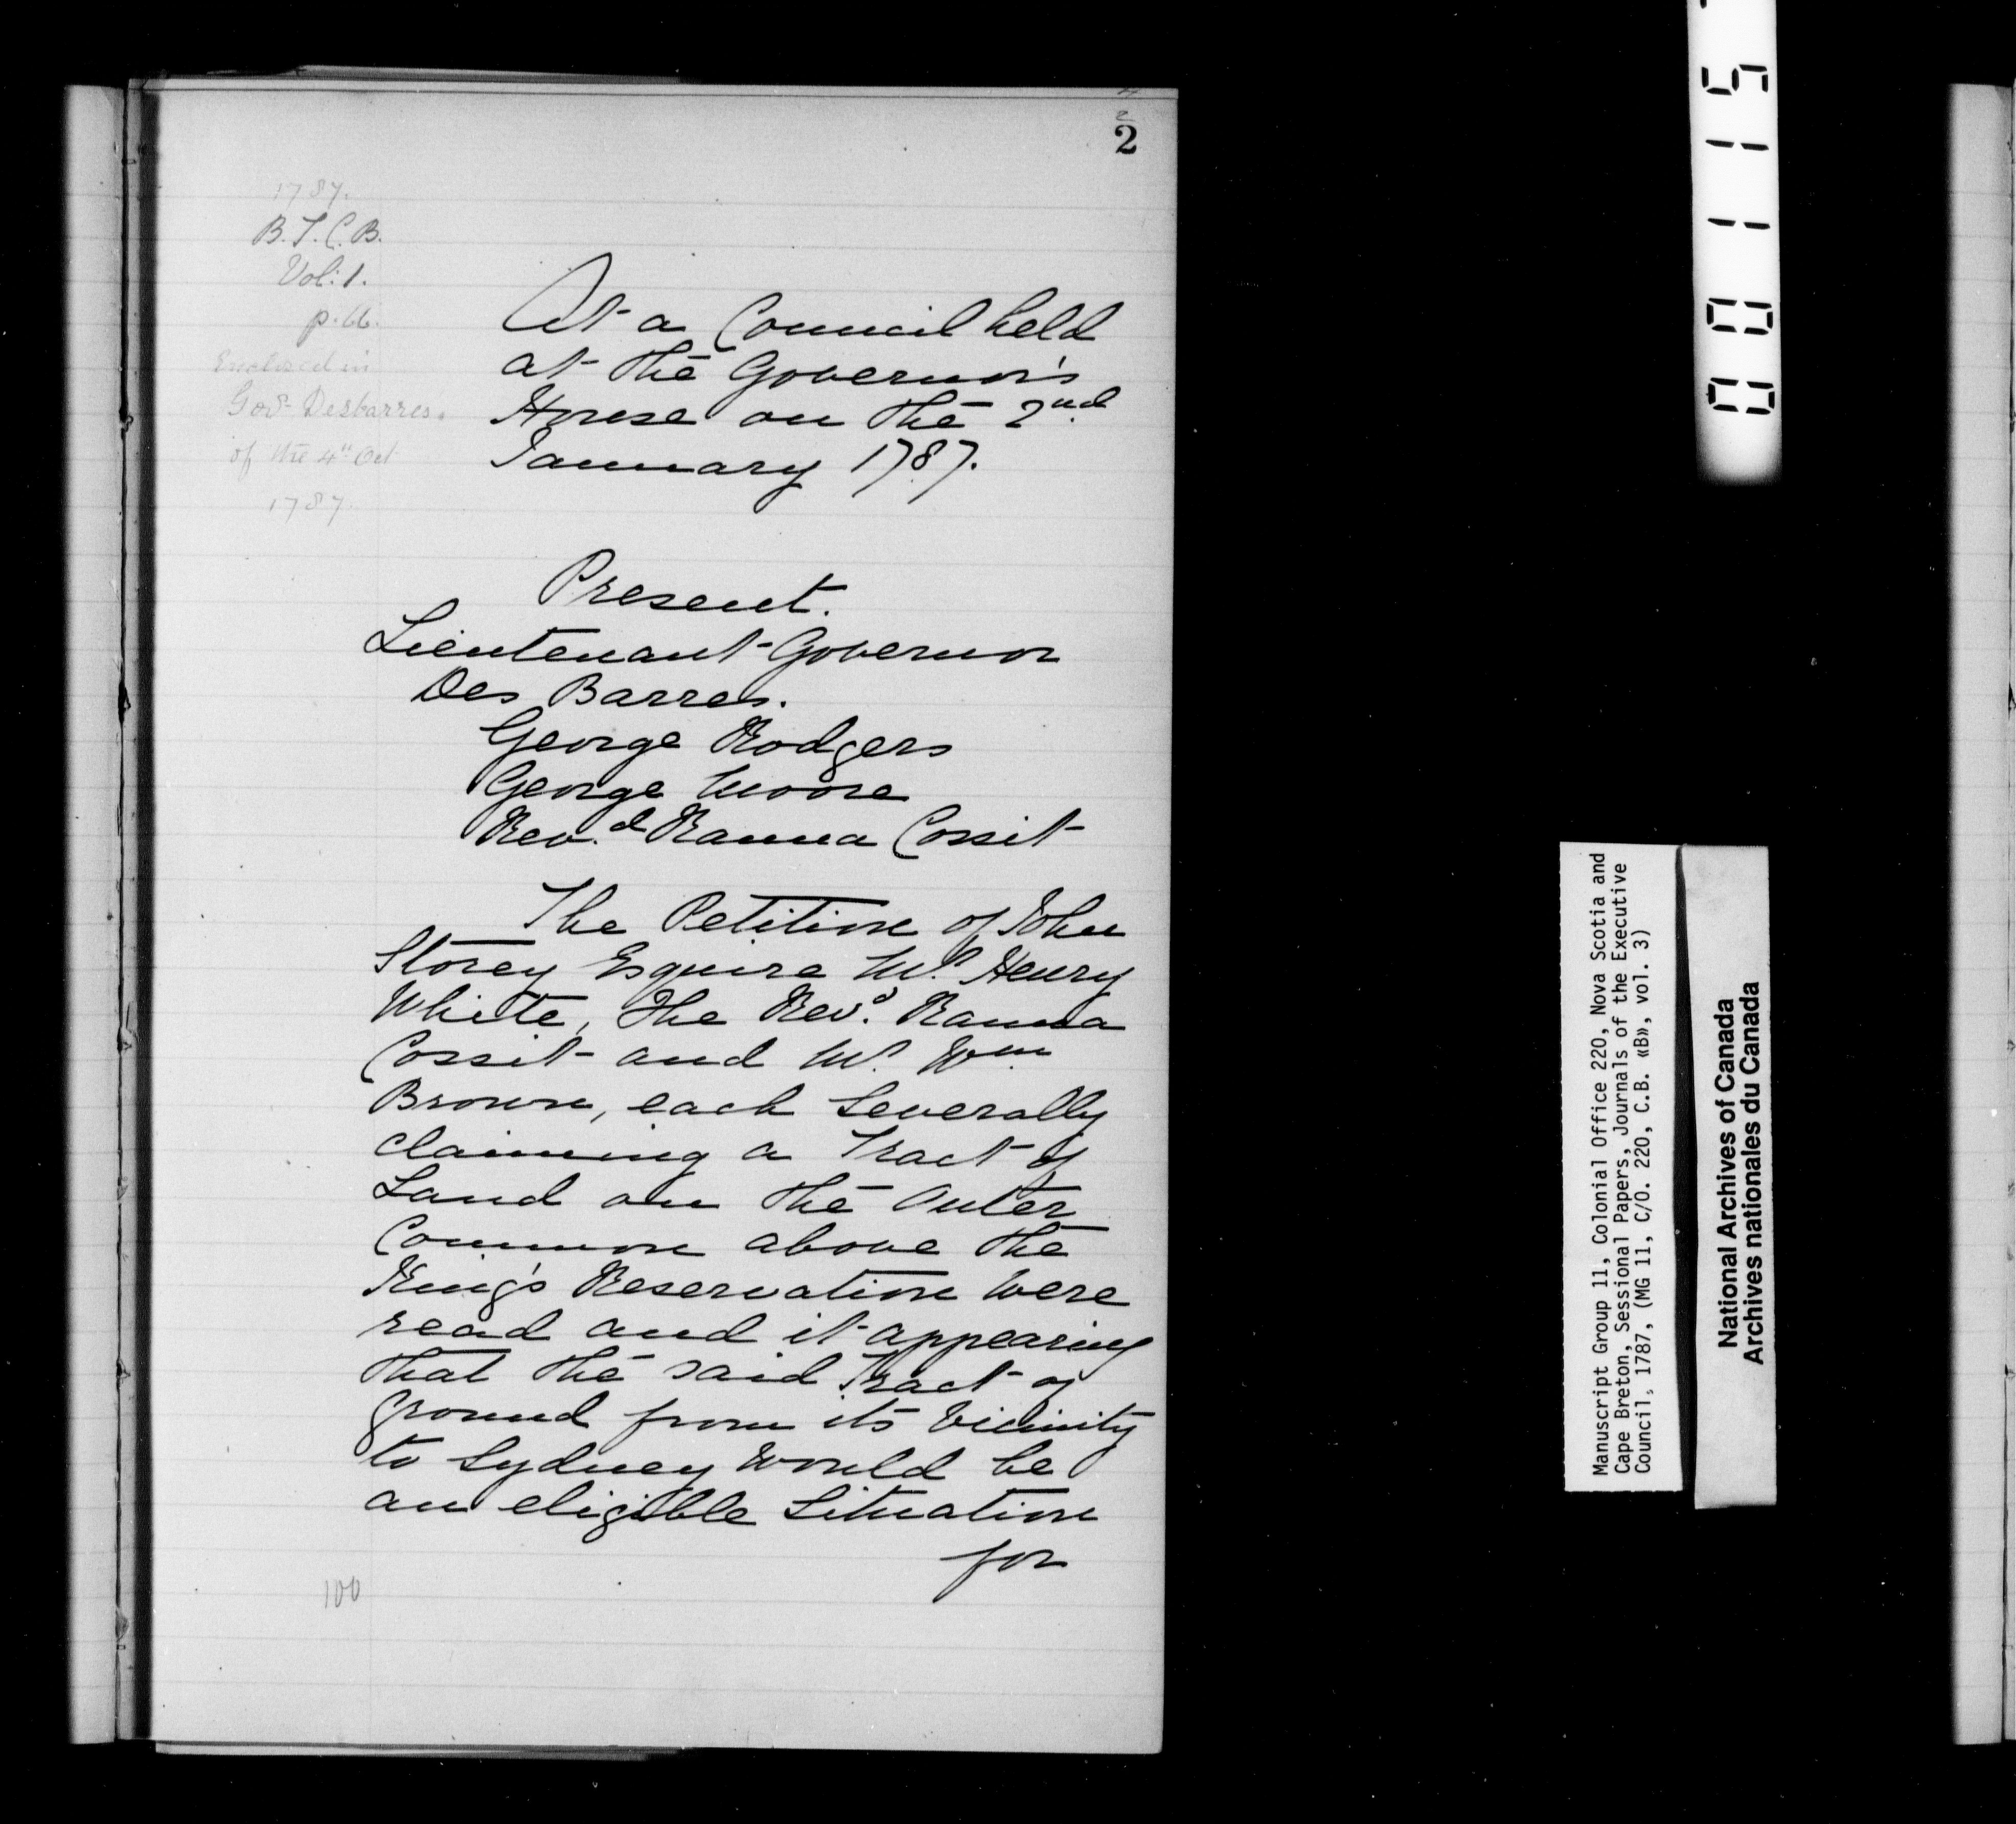 2
2
1787.
B.T.C.B.
Vol: 1.
p. 66.
Enclosed in
Govr Desbarres'
of the 4th Oct
1787.
At a Council held
at the Governor's
House on the 2nd
January 1787.
Present.
Lieutenant-Governor
Des Barres.
George Rodgers
George Moore
Rev.d Ranna Cossit
The Petition of John
Storey Esquire Mr. Henry
White, the Revd. Ranna
Cossit and Mr. Wm
Brown, each Severally
claiming a Tract of
Land on the Outer
Common above the
King's Reservation were
read and it appearing
that the said Tract of
ground from its Vicinity
to Sydney would be
an eligible Situation
for
100
00115
Manuscript Group 11, Colonial Office 220, Nova Scotia and
Cape Breton, Sessional Papers, Journals of the Executive
Council, 1787, (MG 11, C/O. 220, C.B. «B», vol. 3)
National Archives of Canada
Archives nationales du Canada